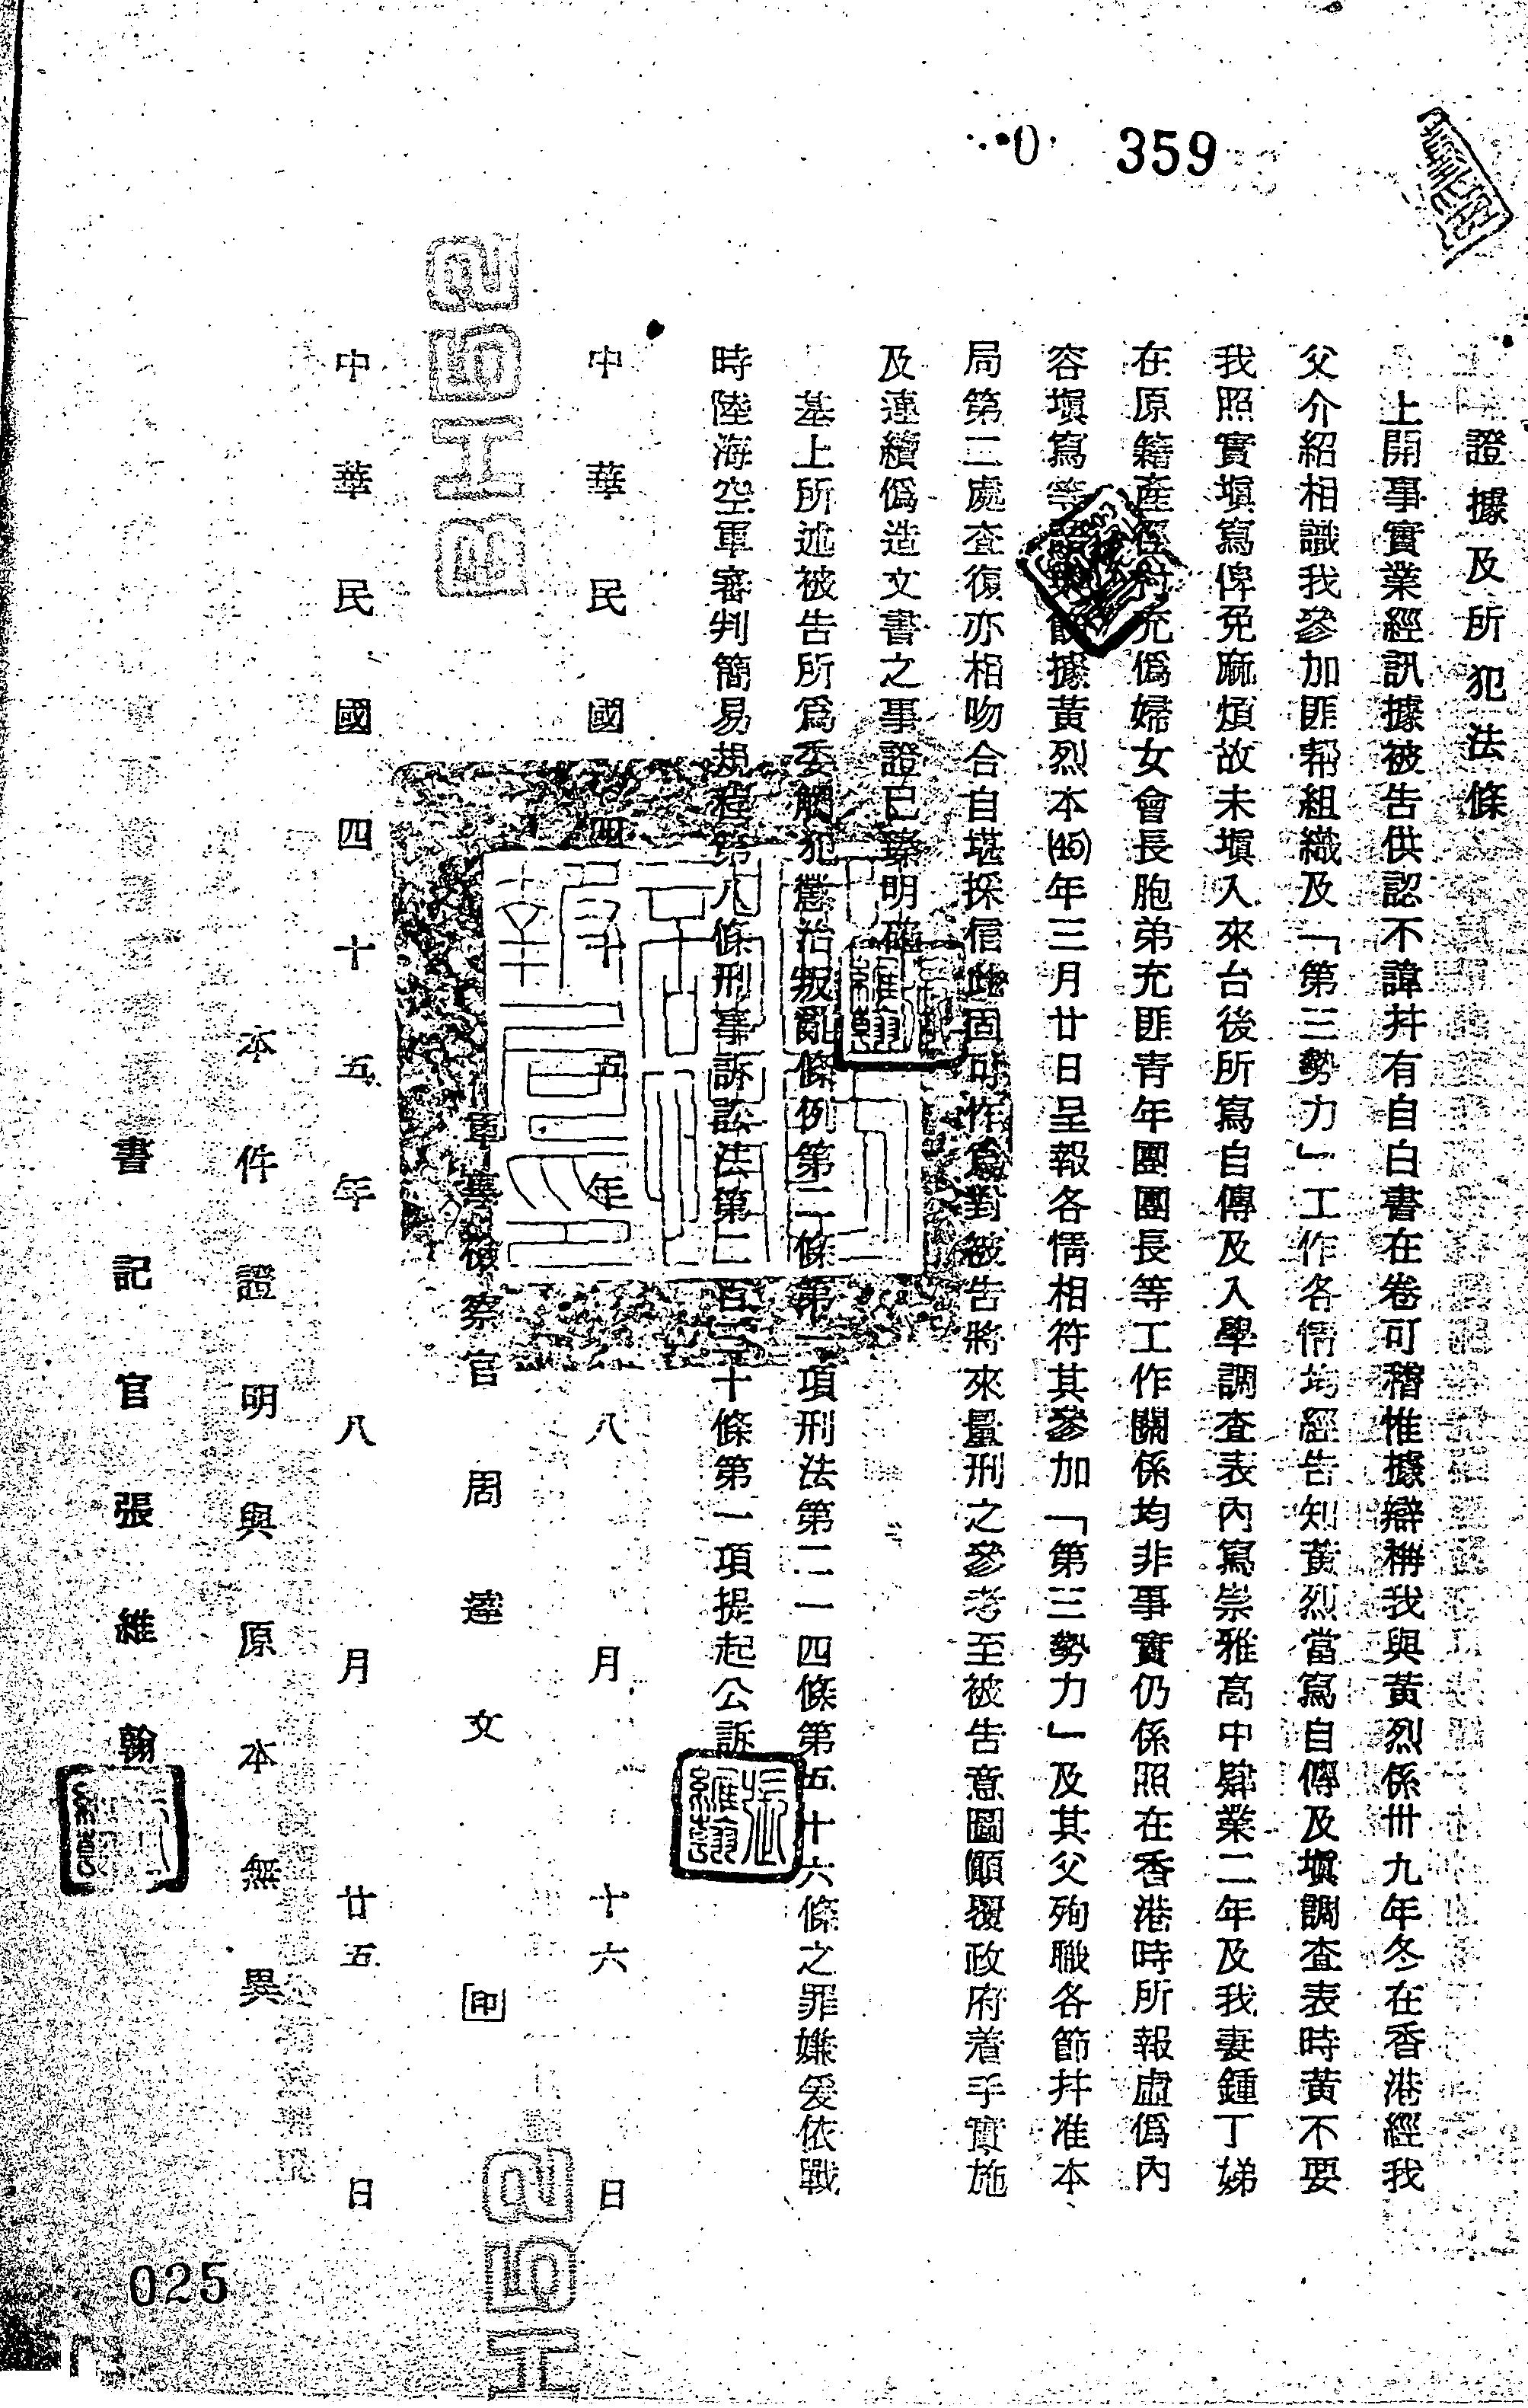 0 359
證據及所犯法條
上開事實業經訊據被告供認不諱幷有自白書在卷可稽惟據辯稱我與黃烈係卅九年冬在香港經我
父介紹相識我參加匪幫組織及「第三勢力」工作各情均經告知黃烈當寫自傳及塡調查表時黃不要
我照實塡寫俾免麻煩故未塡入來台後所寫自傳及入學調查表內寫崇雅高中肄業二年及我妻鍾丁娣
在原籍產徑村充僞婦女會長胞弟充匪青年團團長等工作關係均非事實仍係照在香港時所報虛僞內
容塡寫等據黃烈本(45)年三月廿日呈報各情相符其參加「第三勢力」及其父殉職各節幷准本
局第二處查復亦相吻合自堪採信此固可作爲對被告將來量刑之參考至被告意圖顚覆政府着手實施
及連續僞造文書之事證已臻明確
基上所述被告所爲委觸犯懲治叛亂條例第二條第一項刑法第二一四條第五十六條之罪嫌爰依戰
時陸海空軍審判簡易規程第八條刑事訴訟法第二百三十條第一項提起公訴
中華民國四十五年八月十六日
軍事檢察官周達文 印
中華民國四十五年八月廿五日
本件證明與原本無異
書記官張維翰
025